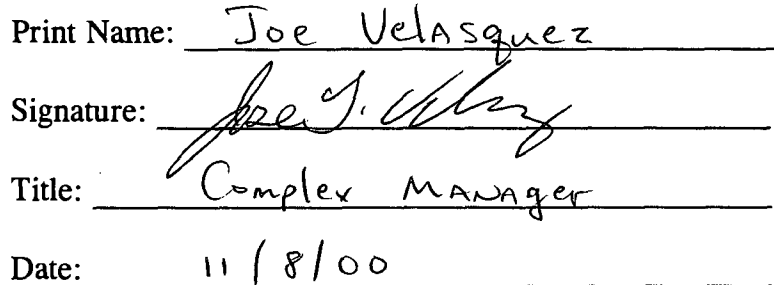 Print Name: Joe Velasquez
Signature:
Title: Complex Manager
Date: 11/8/00